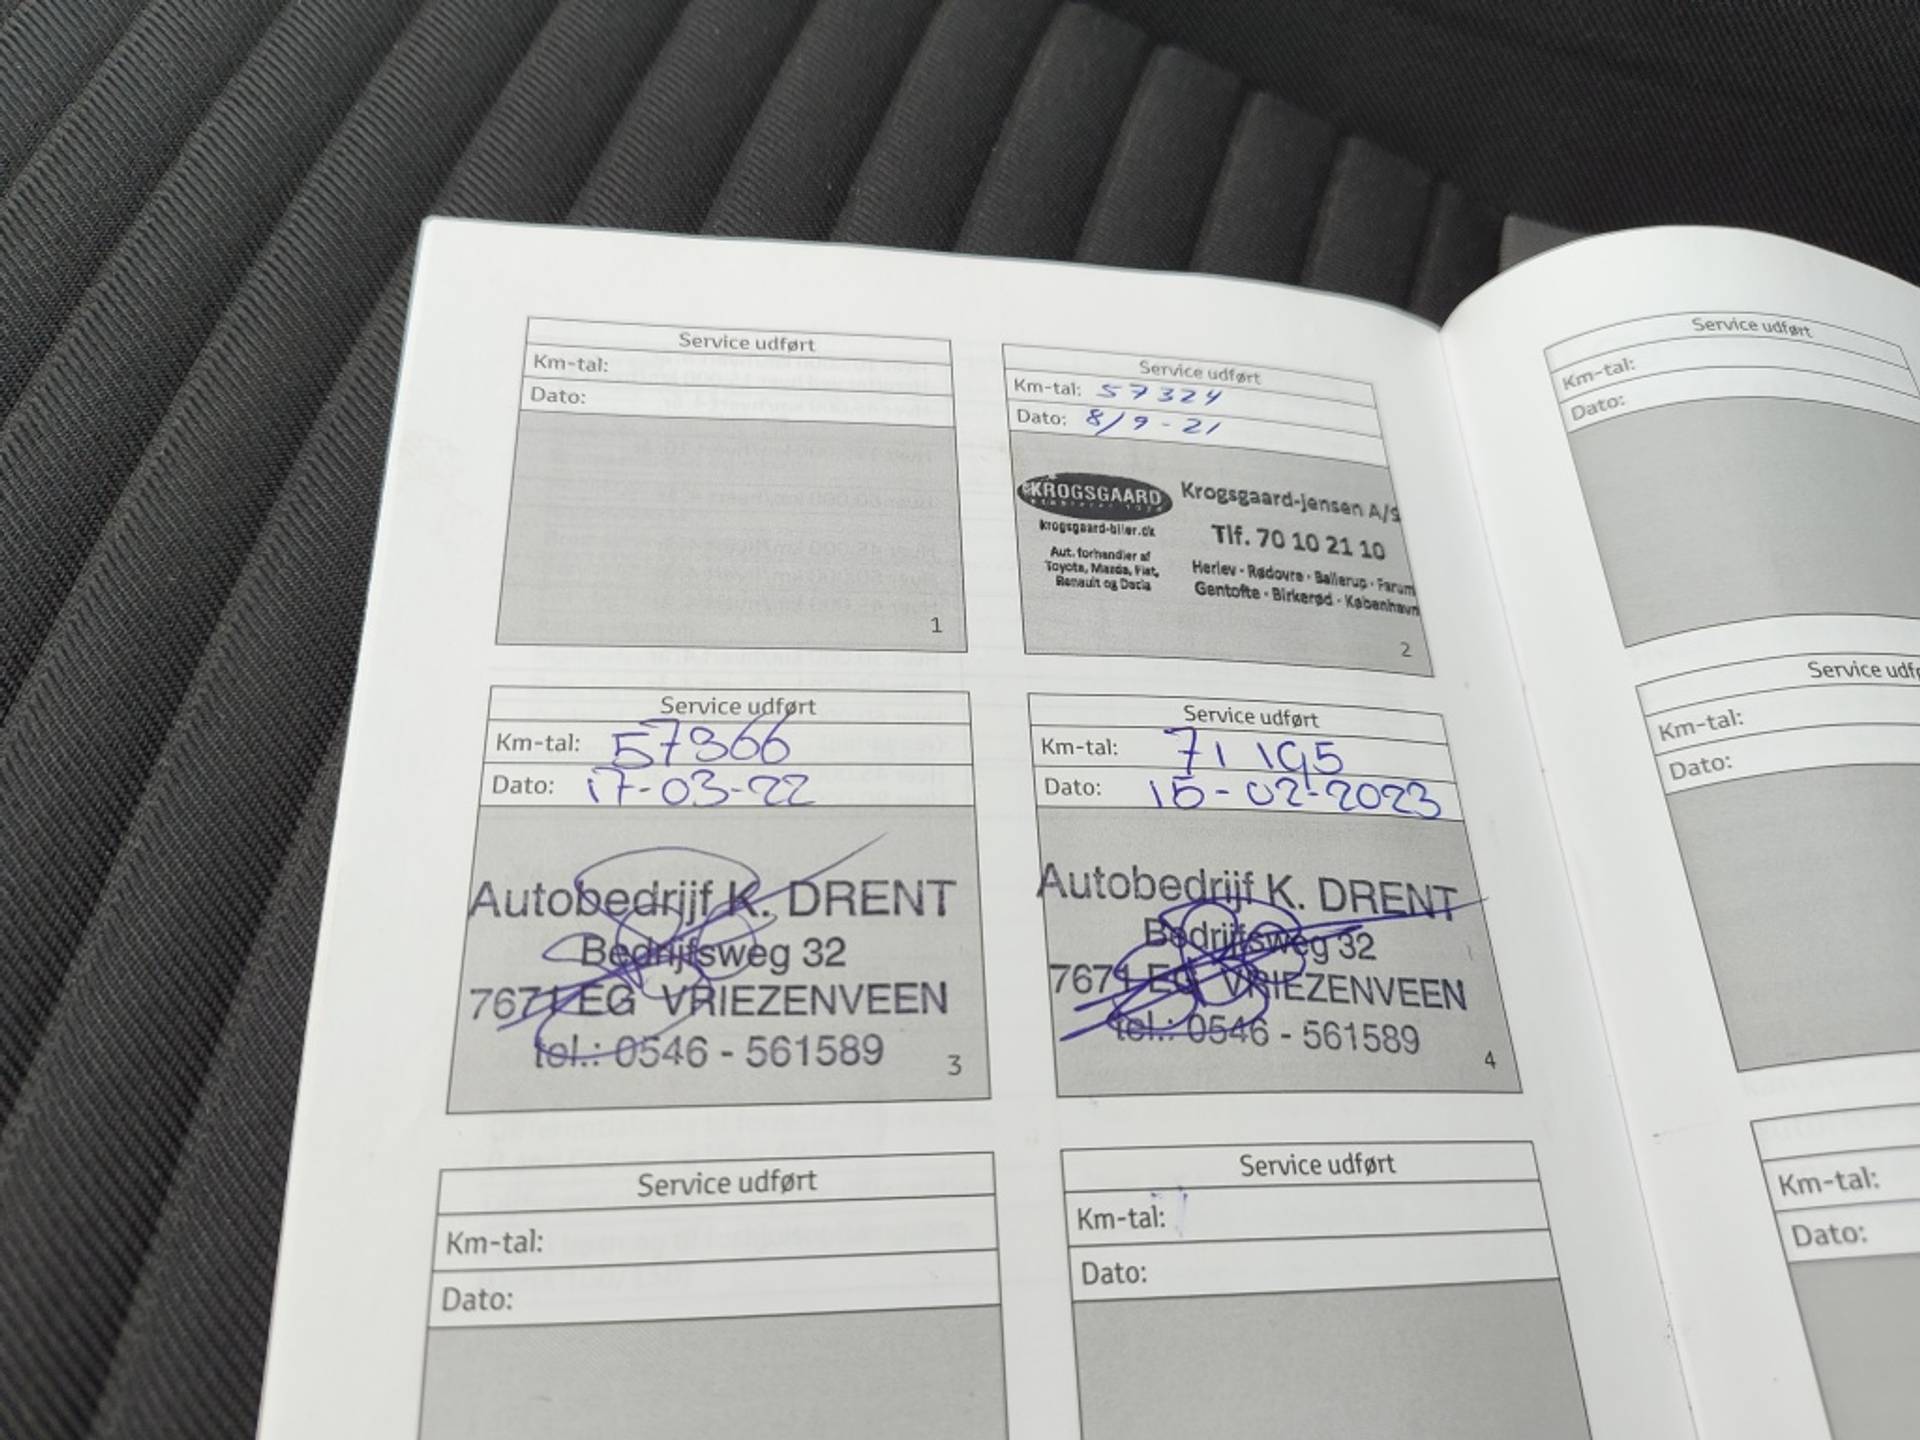 Service udført
Km-tal:
Dato:
1
Service udført
Km-tal: 57324
Dato: 8/9-21
KROGSGAARD
krogsgaard-biler.dk
Aut. forhandler af
Toyota, Mazda, Fiat,
Renault og Dacia
Krogsgaard-Jensen A/S
Tlf. 70 10 21 10
Herlev · Rødovre · Ballerup · Farum
Gentofte · Birkerød · København
2
Service udført
Km-tal: 57366
Dato: 17-03-22
Autobedrijf K. DRENT
Bedrijfsweg 32
7671 EG VRIEZENVEEN
tel.: 0546 - 561589
3
Service udført
Km-tal: 71195
Dato: 15-02-2023
Autobedrijf K. DRENT
Bedrijfsweg 32
7671 EG VRIEZENVEEN
tel.: 0546 - 561589
4
Service udført
Km-tal:
Dato:
Service udført
Km-tal:
Dato:
Service udført
Km-tal:
Dato:
Service udfø
Km-tal:
Dato:
Km-tal:
Dato: